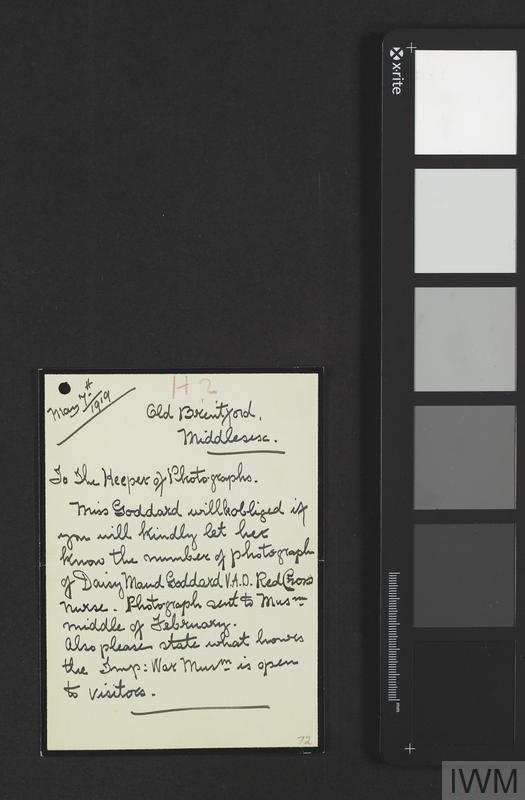 May 7th
1919
H 2
Old Brentford,
Middlesex.
To The Keeper of Photographs.
Miss Goddard will be obliged if
you will kindly let her
know the number of photograph
of Daisy Maud Goddard V.A.D. Red Cross
nurse. Photograph sent to Musm
middle of February.
Also please state what hours
the Imp: War Musm is open
to visitors.
72
x-rite
mm
IWM